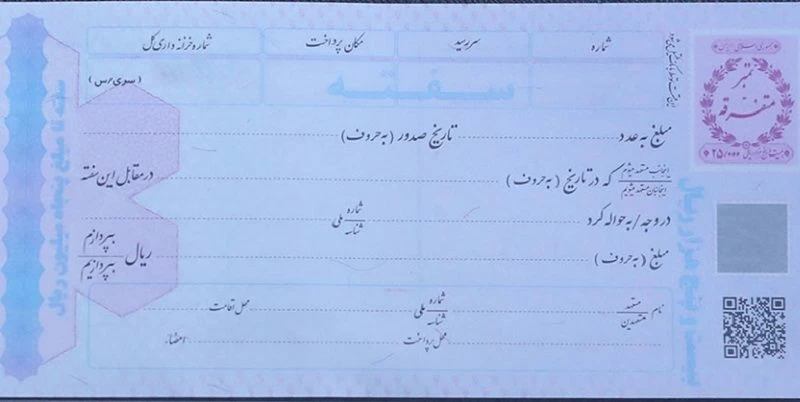 شماره
سررسید
مکان پرداخت
شماره خزانه داری کل
(سری/س)
سفته
مبلغ به عدد
تاریخ صدور (به حروف)
اینجانب متعهد میشوم
اینجانبان متعهد میشویم
که در تاریخ (به حروف)
در مقابل این سفته
در وجه / به حواله کرد
شماره
شناسه
ملی
مبلغ (به حروف)
ریال
بپردازم
بپردازیم
نام
متعهد
متعهدین
شماره
شناسه
ملی
محل اقامت
محل پرداخت
امضاء
جمهوری اسلامی ایران
تمبر
متفرقه
۲۵/۰۰۰
بیست و پنج هزار ریال
سفته تا مبلغ پنجاه میلیون ریال